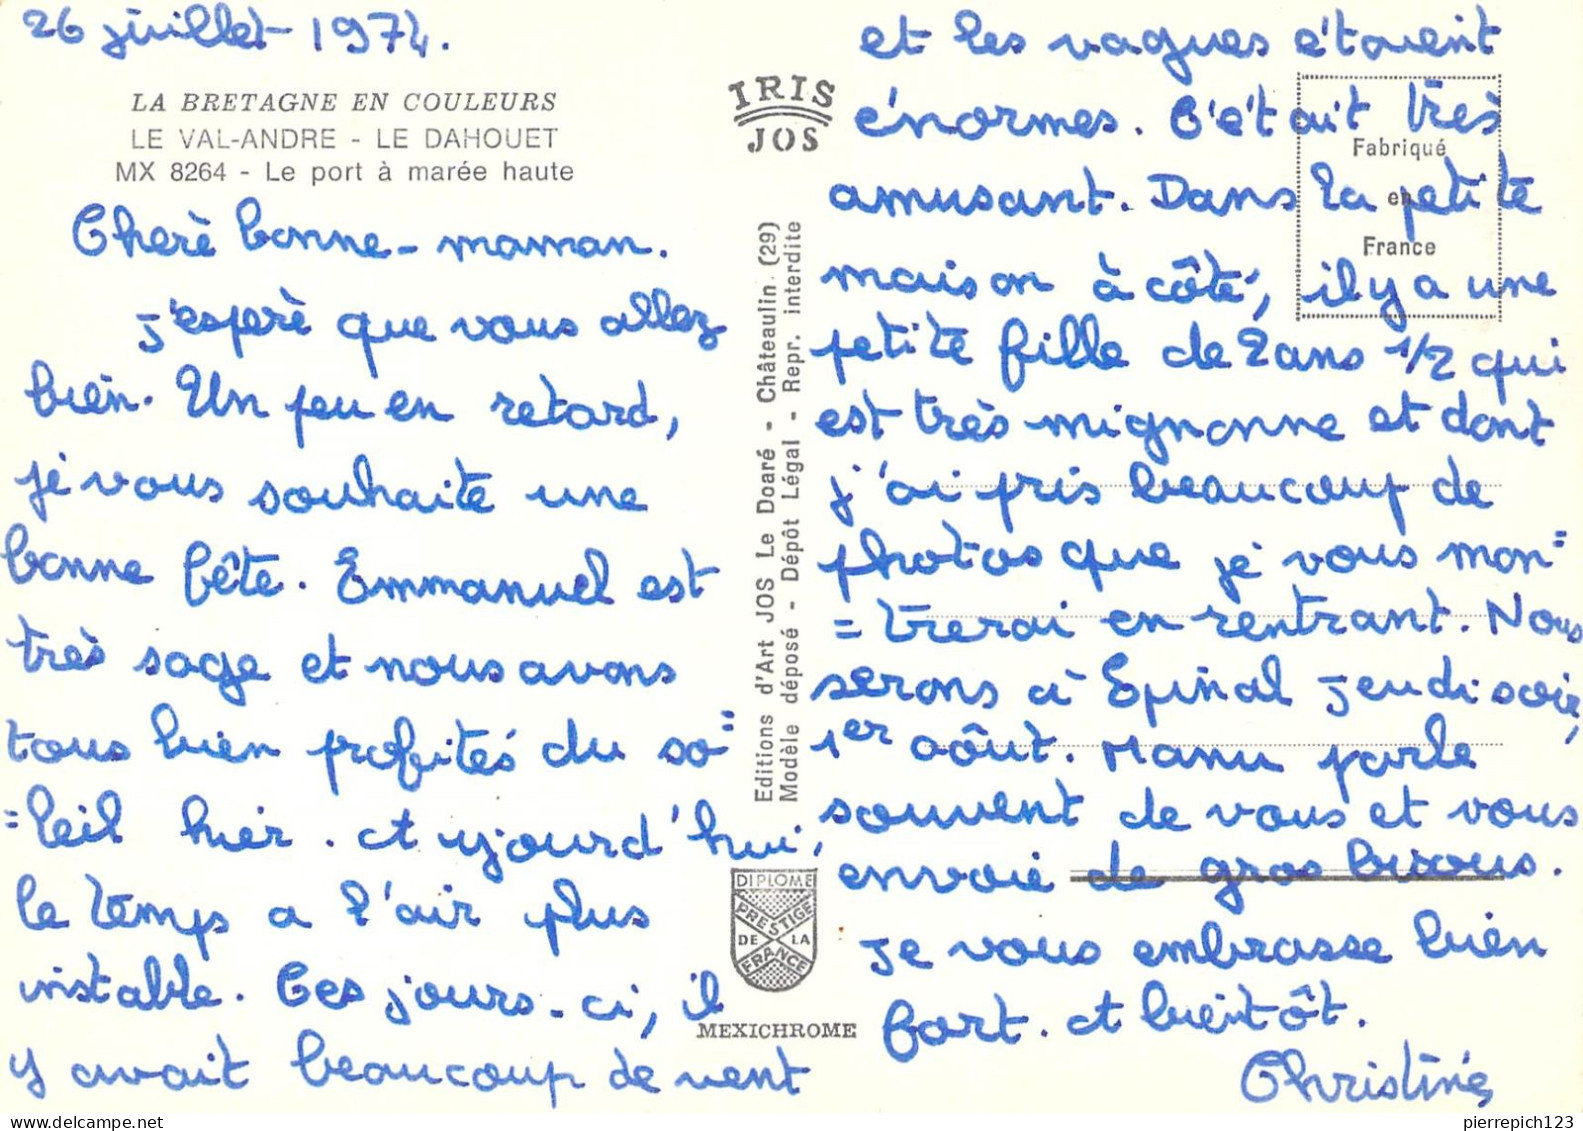 26 juillet 1974.
LA BRETAGNE EN COULEURS
LE VAL-ANDRE - LE DAHOUET
MX 8264 - Le port à marée haute
Cherè bonne-maman.
J'esperè que vous allez
bien. Un peu en retard,
je vous souhaite une
bonne fête. Emmanuel est
très sage et nous avons
tous bien profités du so=
=leil hier. At ujourd'hui,
le temps a l'air plus
instable. Ces jours-ci, il
y avait beaucoup de vent
IRIS
JOS
Editions d'Art JOS Le Doaré - Châteaulin (29)
Modèle déposé - Dépôt Légal - Repr. interdite
DIPLOME
PRESTIGE
DE LA
FRANCE
MEXICHROME
Fabriqué
en
France
et les vagues étaient
énormes. C'était très
amusant. Dans la petite
maison à côté, il y a une
petite fille de 2 ans 1/2 qui
est très mignonne et dont
j'ai pris beaucoup de
photos que je vous mon=
=trerai en rentrant. Nous
serons à Epinal jeudi soir,
1er août. Manu parle
souvent de vous et vous
envoie de gros bisous.
Je vous embrasse bien
fort. At bientôt.
Christine
pierrepich123